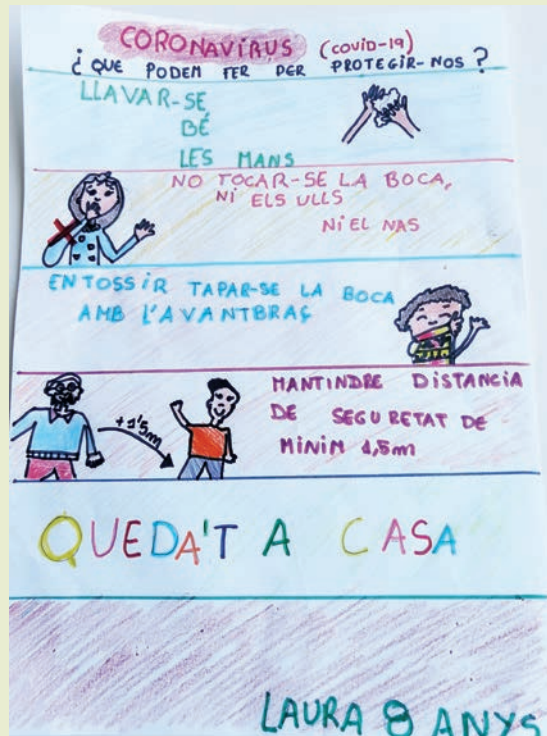 CORONAVIRUS (COVID-19)
¿QUE PODEM FER PER PROTEGIR-NOS?
LLAVAR-SE
BÉ
LES MANS
NO TOCAR-SE LA BOCA,
NI ELS ULLS
NI EL NAS
EN TOSSIR TAPAR-SE LA BOCA
AMB L'AVANTBRAÇ
+1'5m
MANTINDRE DISTANCIA
DE SEGURETAT DE
MINIM 1,5m
QUEDA'T A CASA
LAURA 8 ANYS